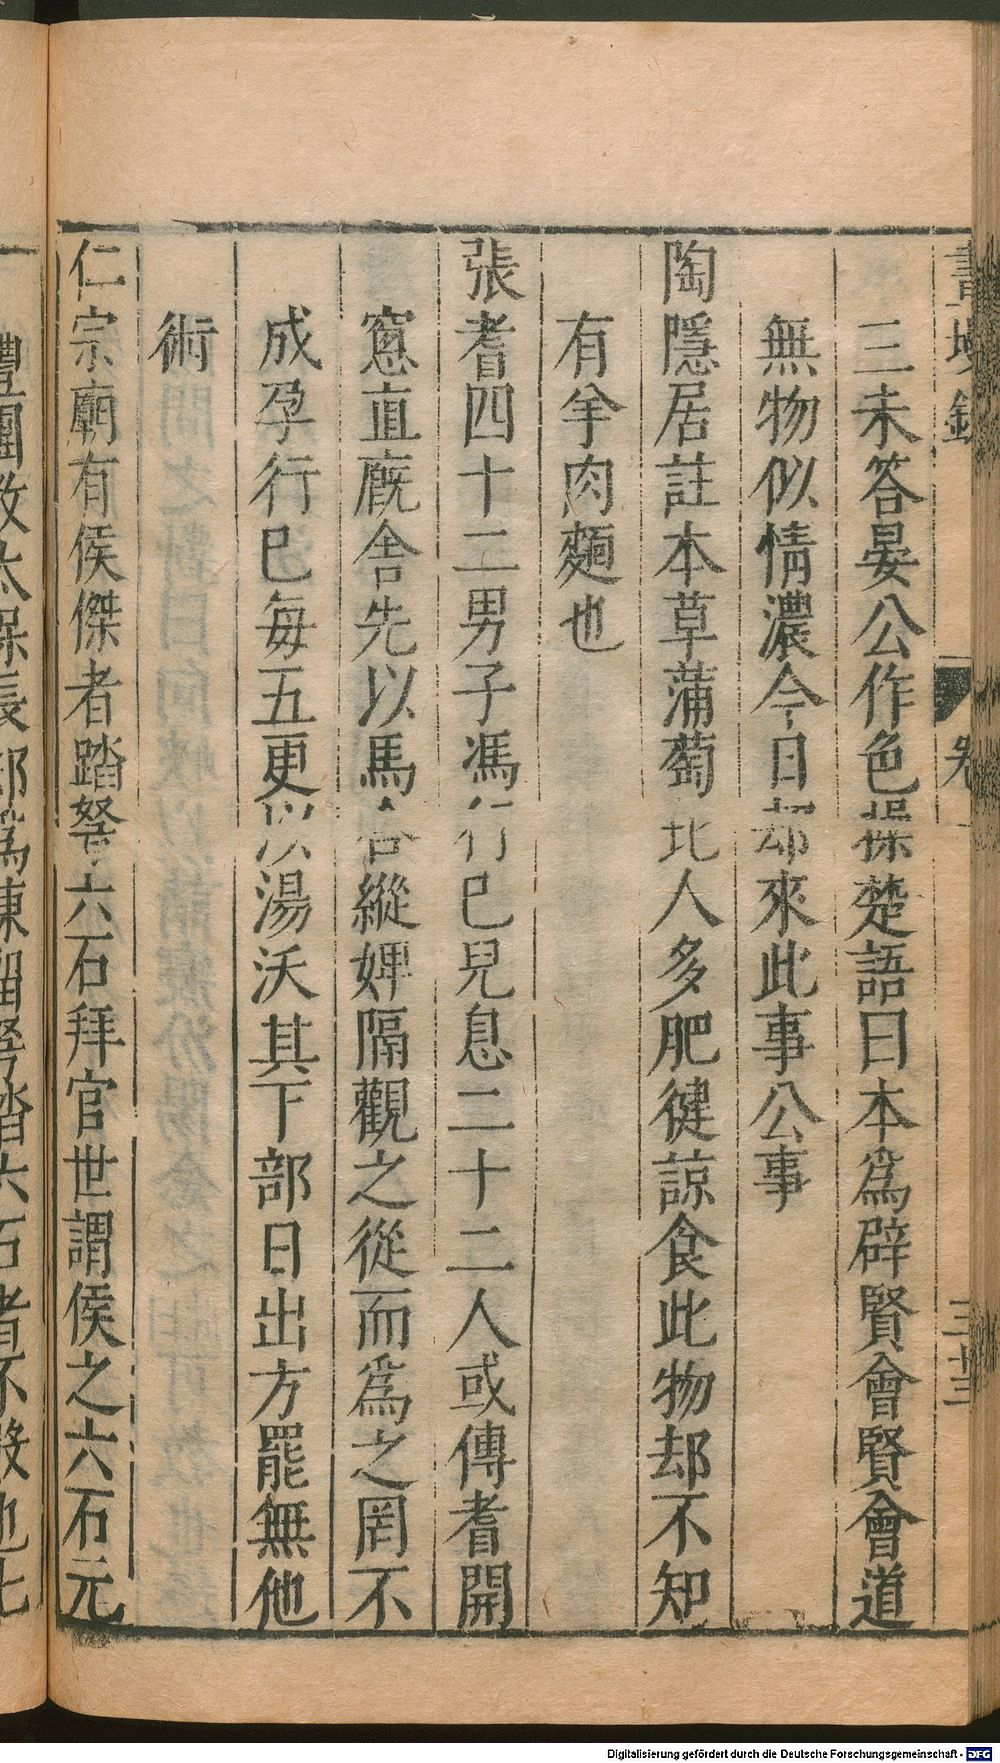 三未答晏公作色操楚語曰本爲辟賢會賢會道
無物似情濃今日却來此事公事
陶隱居註本草蒲萄北人多肥健諒食此物却不知
有羊肉麵也
張耆四十二男子馮行巳兒息二十二人或傳耆開
窻直廐舍先以馬合縱婢隔觀之從而爲之罔不
成孕行巳每五更以湯沃其下部日出方罷無他
術
仁宗廟有侯傑者踏弩六石拜官世謂侯之六石元
卷一
三十三
Digitalisierung gefördert durch die Deutsche Forschungsgemeinschaft - DFG